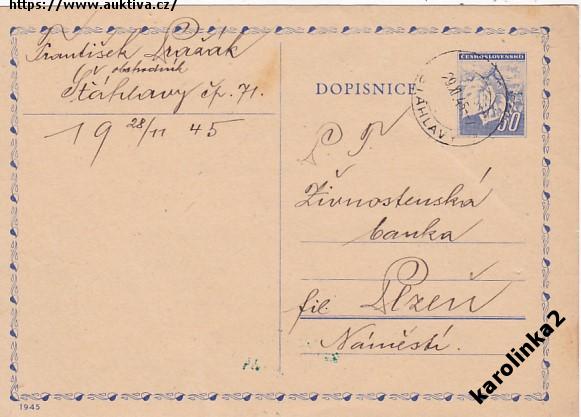 https://www.auktiva.cz/
František Pražák
obchodník
Šťáhlavy čp. 71.
19 28/11 45
DOPISNICE
ČESKOSLOVENSKO
60
ŠŤÁHLAVY
P. T.
Živnostenská
banka
fil Plzeň
Náměstí.
1945
karolinka2